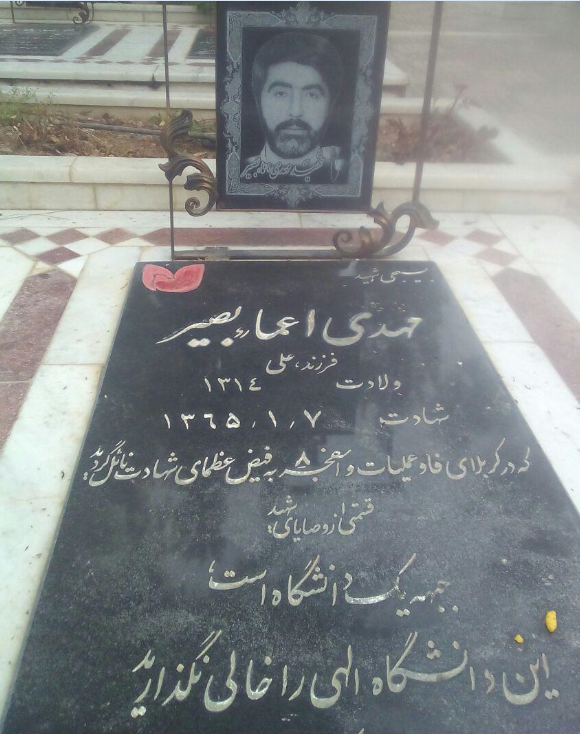 شهید مهدی اعماء بصیر
بسیجی شهید
مهدی اعماء بصیر
فرزند، علی
ولادت ۱۳۱٤
شهادت ۱۳٦۵٫۱٫۷
که در کربلای فاو عملیات والفجر ۸ به فیض عظمای شهادت نائل گردید
قسمتی از وصایای شهید
جبهه یک دانشگاه است،
این دانشگاه الهی را خالی نگذارید